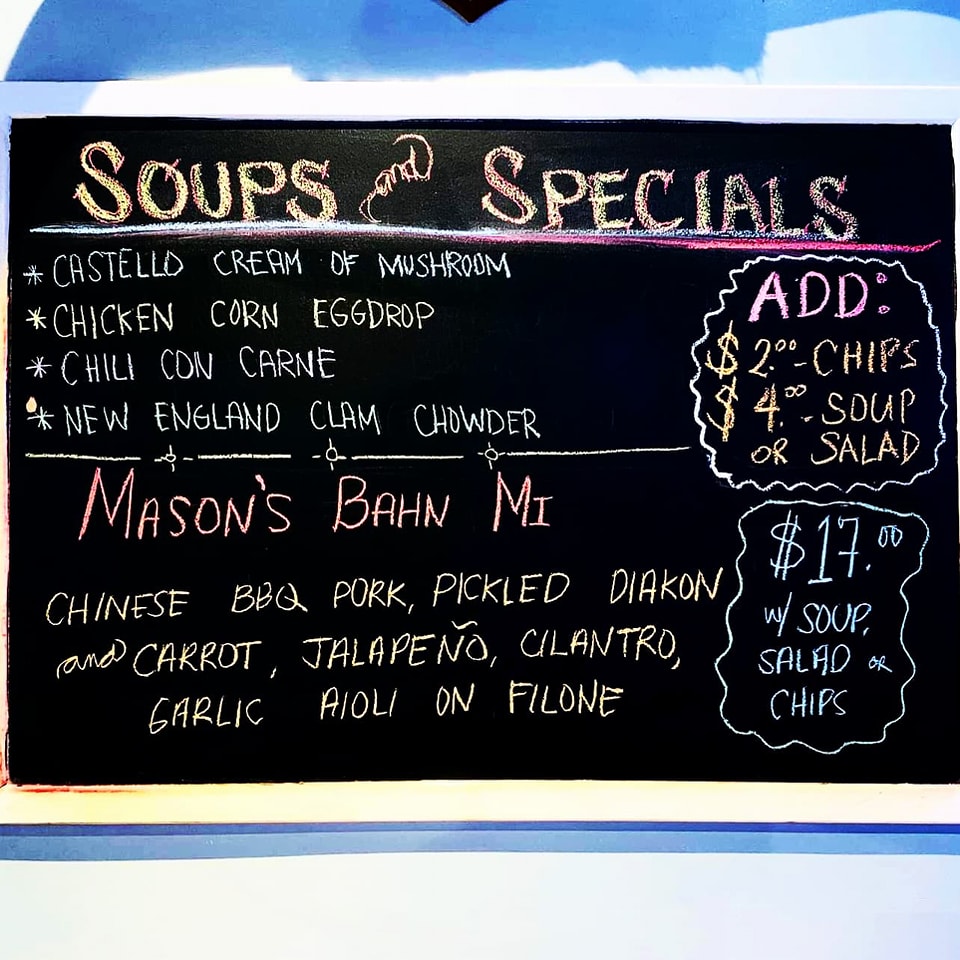 SOUPS and SPECIALS
* CASTELLO CREAM OF MUSHROOM
* CHICKEN CORN EGGDROP
* CHILI CON CARNE
* NEW ENGLAND CLAM CHOWDER
ADD:
$2.00 - CHIPS
$4.00 - SOUP
OR SALAD
MASON'S BAHN MI
CHINESE BBQ PORK, PICKLED DIAKON
and CARROT, JALAPEÑO, CILANTRO,
GARLIC AIOLI ON FILONE
$17.00
W/ SOUP,
SALAD OR
CHIPS